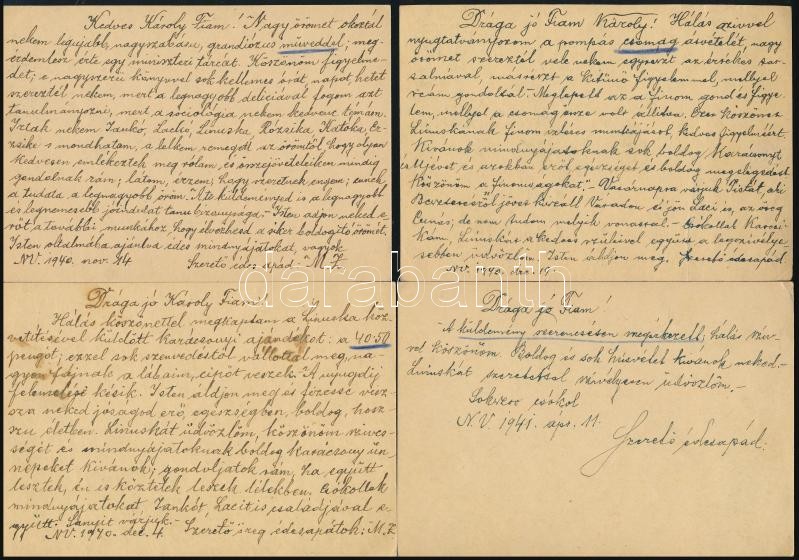 Kedves Károly Fiam! Nagy örömet okoztál
nekem legujabb, nagyszabásu, grandiózus műveddel; meg-
érdemlesz érte egy miniszteri tárcát. Köszönöm figyelme-
det; e nagyszerü könyvvel sok kellemes órát, napot, hetet
szereztél nekem, mert a legnagyobb deliciával fogom azt
tanulmányozni, mert a sociologia nekem kedvenc témám.
Irtak nekem Jankó, Lackó, Linuska, Rózsika, Katóka, Er-
zsike s mondhatom, a lelkem remegett az örömtől, hogy olyan
kedvesen emlékeztek meg rólam, és összejöveteleiken mindig
gondolnak rám; látom, érzem, hogy szeretnek engem; ennek
a tudata a legnagyobb öröm. A te küldeményed is a legnagyobb
és legnemesebb jóindulat tanubizonysága. Isten adjon neked e-
rőt a további munkához, hogy élvezhesd a siker boldogitó örömét.
Isten oltalmába ajánlva édes mindnyájatokat, vagyok
NV. 1940. nov. 14 Szerető édes apád: M. Z.
Drága jó Fiam Károly! Hálás szivvel
nyugtatványozom a pompás csomag átvételét, nagy
örömet szereztél vele nekem egyrészt az értékes tar-
talmával, másrészt a kitünő figyelemmel, mellyel
reám gondoltál. Meglepett az a finom gond és figye-
lem, mellyel a csomag össze volt állitva. Ezer köszönet
Linuskának finom izléses munkájáért, kedves figyelméért.
Kivánok mindnyájatoknak sok boldog Karácsonyt
Ujévet és azokban erőt, egészséget és boldog megelégedést
Köszönöm a finomságokat. Vasárnapra várjuk Pistát, aki
jöves Váradon és jön Laci is, az öreg
de nem tudom melyik vonattal. Csókollak Karcsi-
kám, Linuskát a kedves szüleivel együtt a legszivélye-
sebben üdvözlöm. Isten áldjon meg. Szerető édesapád
NV. 1940. dec. 19.
Drága jó Károly Fiam!
Hálás köszönettel megkaptam a Linuska köz-
vetitésével küldött karácsonyi ajándékot: a 40·50
pengőt; ezzel sok szenvedéstől váltottál meg, na-
gyon fájnak a lábaim, cipőt veszek. A nyugdij
felemelése késik. Isten áldjon meg és fizesse visz-
sza neked jóságod erő, egészségben, boldog, hosz-
szu életben. Linuskát üdvözlöm, köszönöm szives-
ségét és mindnyájatoknak boldog karácsony ün-
népeket kivánok; gondoljatok rám, ha együtt
lesztek, én is köztetek leszek lélekben. Csókollak
mindnyájatokat Jankót, Lacit is családjával e-
gyütt. Samyit várjuk.
NV. 1940. dec. 4. Szerető öreg édesapátok: M. Z.
Drága jó Fiam!
A küldemény szerencsésen megérkezett, hálás sziv-
vel köszönöm. Boldog és sok husvétet kivánok neked.
Linuskát szeretettel szivélyesen üdvözlöm.
Sokszor csókol
N.V. 1941. apr. 11.
Szerető édesapád.
darabanth